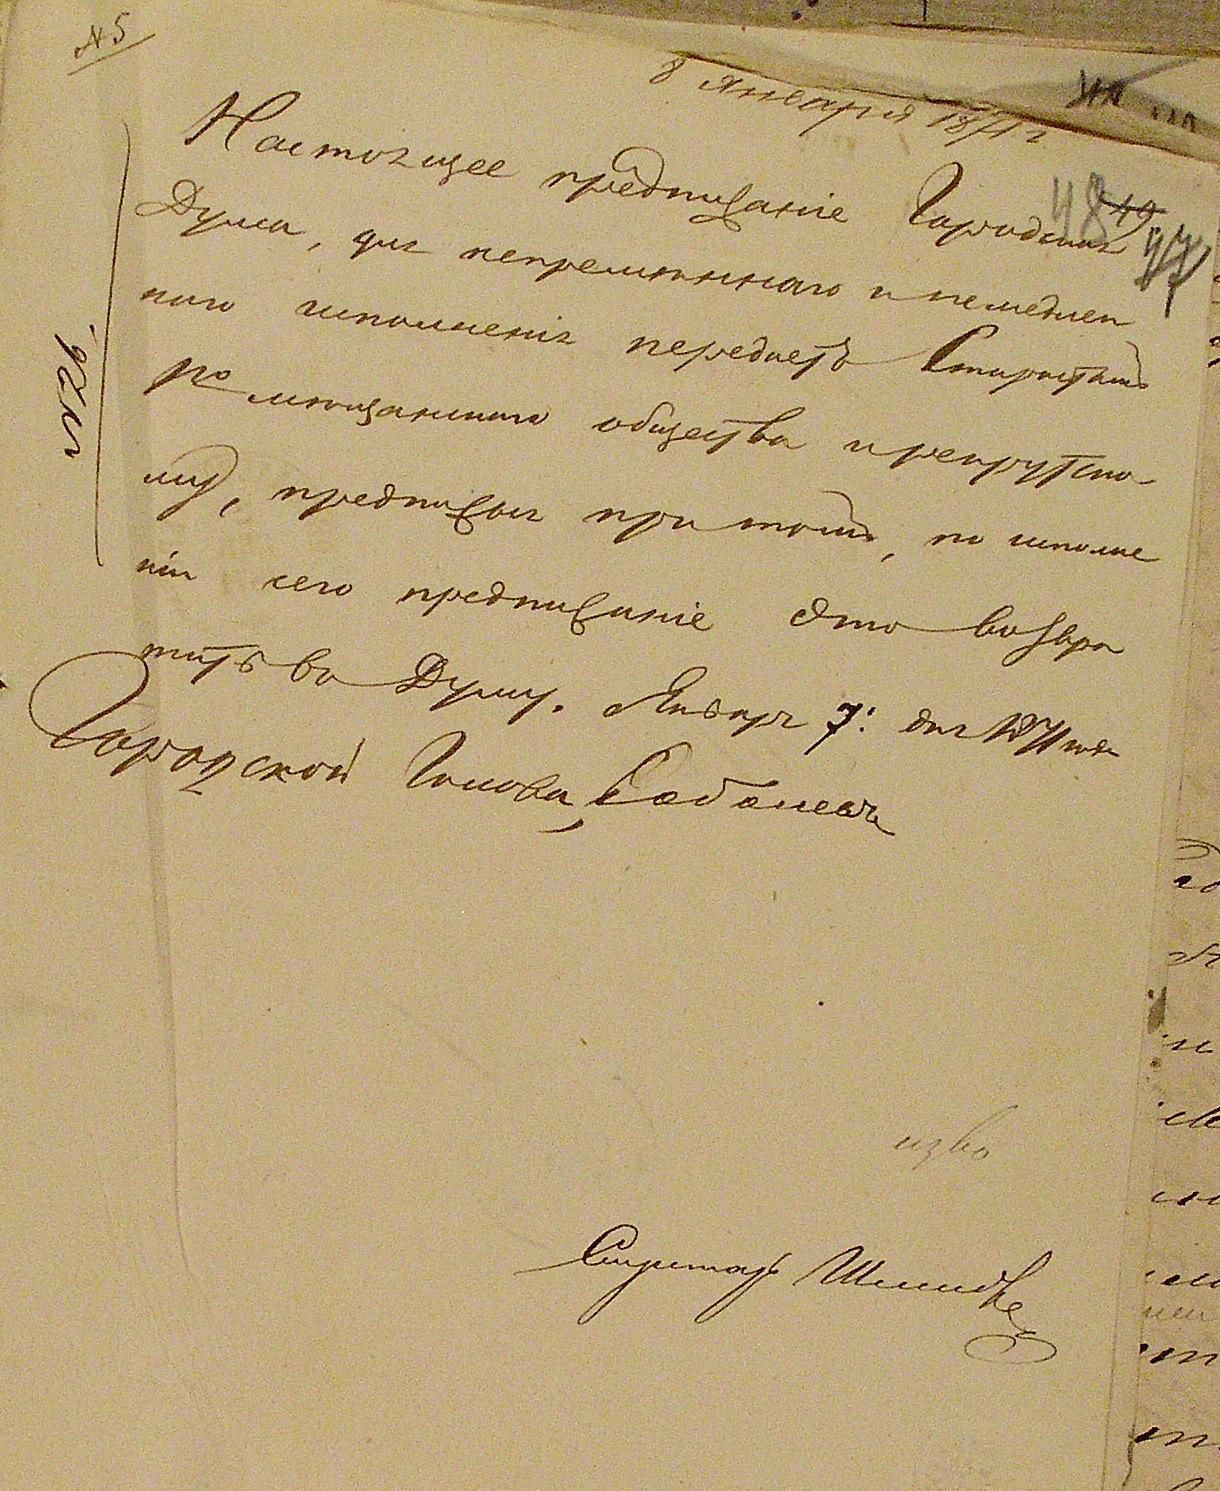 № 5
8 Января 1871 г
Настоящее предписаніе Городская
Дума, для непремѣннаго и немедлен
наго исполненія передаетъ Старостамъ
мѣщанскаго общества и рекрутско
му, предписывая при томъ, по исполне
ніи сего предписаніе это возвра
тить въ Думу. Января 7: дня 1871 года
Городской Голова,
Секретарь